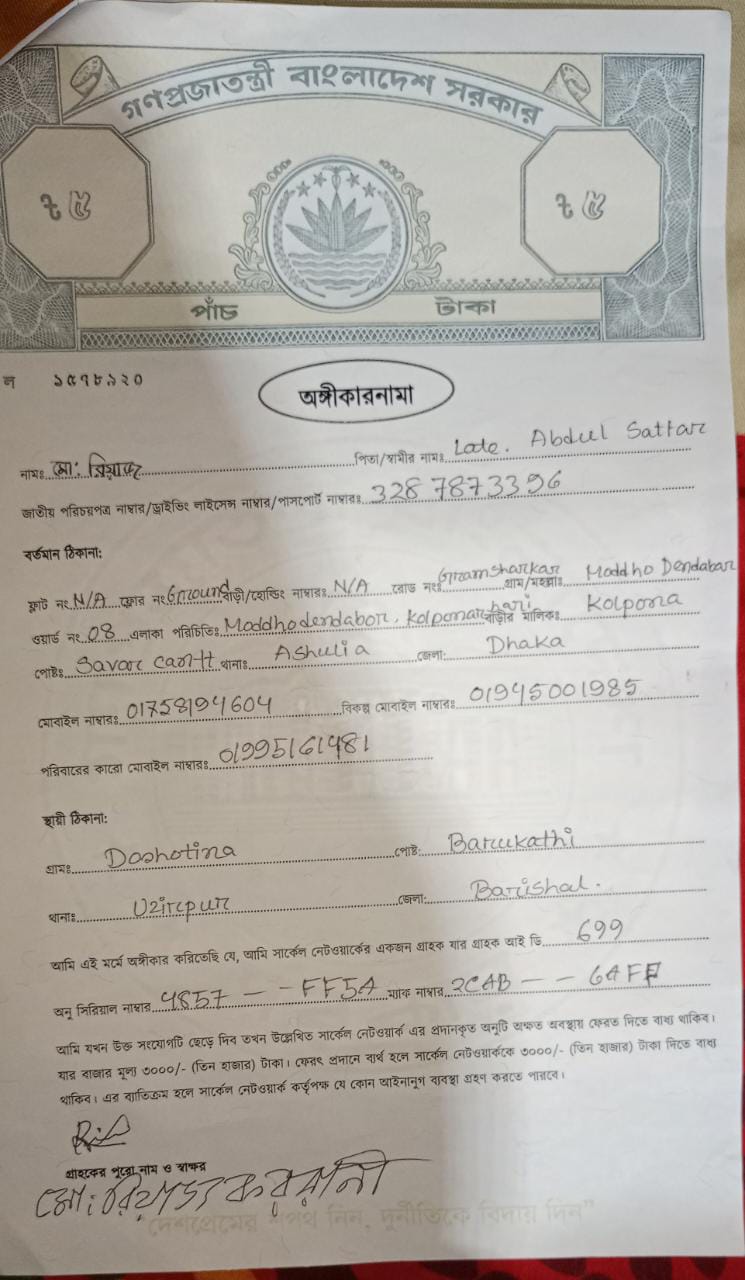 গণপ্রজাতন্ত্রী বাংলাদেশ সরকার
৳ ৫ ৳ ৫
পাঁচ টাকা
ন ১৫৭৮৯২০
অঙ্গীকারনামা
নামঃ মো: রিয়াজ পিতা/স্বামীর নামঃ Late. Abdul Sattar
জাতীয় পরিচয়পত্র নাম্বার/ড্রাইভিং লাইসেন্স নাম্বার/পাসপোর্ট নাম্বারঃ 3287873396
বর্তমান ঠিকানা:
ফ্লাট নং N/A ফ্লোর নং Ground বাড়ী/হোল্ডিং নাম্বারঃ N/A রোড নংঃ Gramsharkar গ্রাম/মহল্লাঃ Moddho Dendabar
ওয়ার্ড নং 08 এলাকা পরিচিতিঃ Moddhodendabor, Kolponar bari বাড়ীর মালিকঃ Kolpona
পোষ্টঃ Savar cantt থানাঃ Ashulia জেলা: Dhaka
মোবাইল নাম্বারঃ 01758194604 বিকল্প মোবাইল নাম্বারঃ 01945001985
পরিবারের কারো মোবাইল নাম্বারঃ 01995161481
স্থায়ী ঠিকানা:
গ্রামঃ Doshotina পোষ্ট: Barukathi
থানাঃ Uzirpur জেলা: Barishal.
আমি এই মর্মে অঙ্গীকার করিতেছি যে, আমি সার্কেল নেটওয়ার্কের একজন গ্রাহক যার গ্রাহক আই ডি 699
অনু সিরিয়াল নাম্বার 4857 - - FF5A ম্যাক নাম্বার 2CAB - - 6AFF
আমি যখন উক্ত সংযোগটি ছেড়ে দিব তখন উল্লেখিত সার্কেল নেটওয়ার্ক এর প্রদানকৃত অনুটি অক্ষত অবস্থায় ফেরত দিতে বাধ্য থাকিব।
যার বাজার মূল্য ৩০০০/- (তিন হাজার) টাকা। ফেরৎ প্রদানে ব্যর্থ হলে সার্কেল নেটওয়ার্ককে ৩০০০/- (তিন হাজার) টাকা দিতে বাধ্য
থাকিব। এর ব্যতিক্রম হলে সার্কেল নেটওয়ার্ক কর্তৃপক্ষ যে কোন আইনানুগ ব্যবস্থা গ্রহণ করতে পারবে।
গ্রাহকের পুরো নাম ও স্বাক্ষর
মো: রিয়াজ করমানী
"দেশপ্রেমের শপথ নিন, দুর্নীতিকে বিদায় দিন"